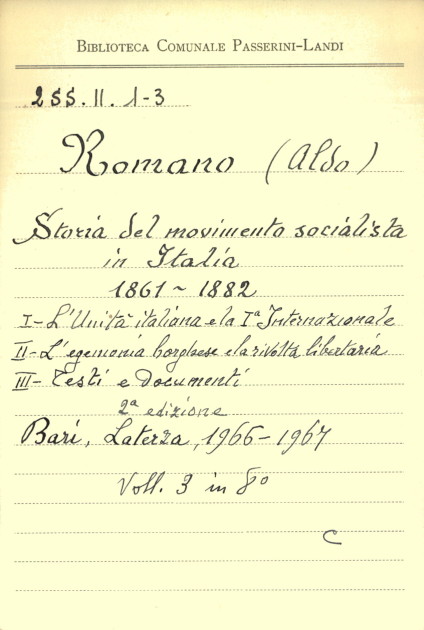 BIBLIOTECA COMUNALE PASSERINI-LANDI
255.II.1-3
Romano (Aldo)
Storia del movimento socialista
in Italia
1861 - 1882
I- L'Unità italiana e la Iª Internazionale
II- L'egemonia borghese e la rivolta libertaria
III- Testi e Documenti
2ª edizione
Bari, Laterza, 1966-1967
Voll. 3 in 8º
C